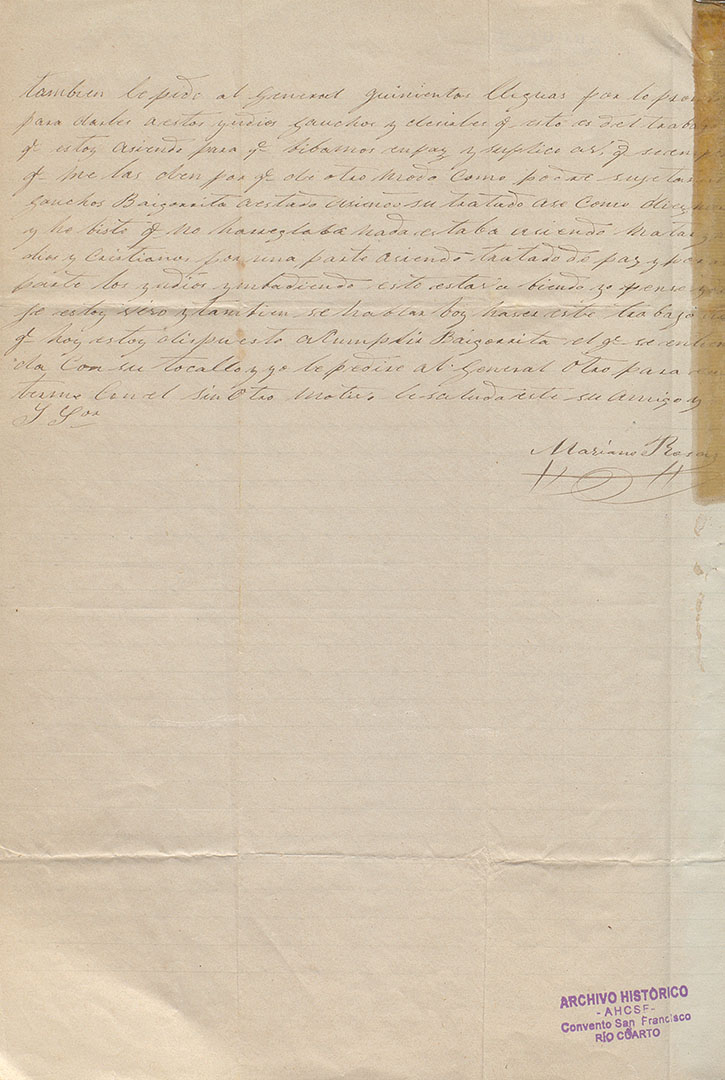 tambien le pido al General quinientas lleguas por lo pron
para darles a estos yndios gauchos y desirles q esto es del trabajo
q estoy asiendo para q bibamos en paz y suplico a
q me las den por q de otro modo como podre sujetar
gauchos Baigorrita a estado asiendo su tratado ase como dies
y he bisto q no harreglaba nada estaba asiendo matar
dios y Cristianos por una parte asiendo tratado de paz y por
parte los yndios ymbadiendo esto estar a biendo yo pense
Je estoy y tambien se hablar boy haser este trabajo
q hoy estoy dispuesto a Cumplir Baigorrita el q se entien
da Con su tocallo y yo le pedire al General Otro para
terme Con el sin Otro Motibo le saluda este su amigo y
S Sor
Mariano Rosas
ARCHIVO HISTÓRICO
- AHCSF-
Convento San Francisco
RÍO CUARTO